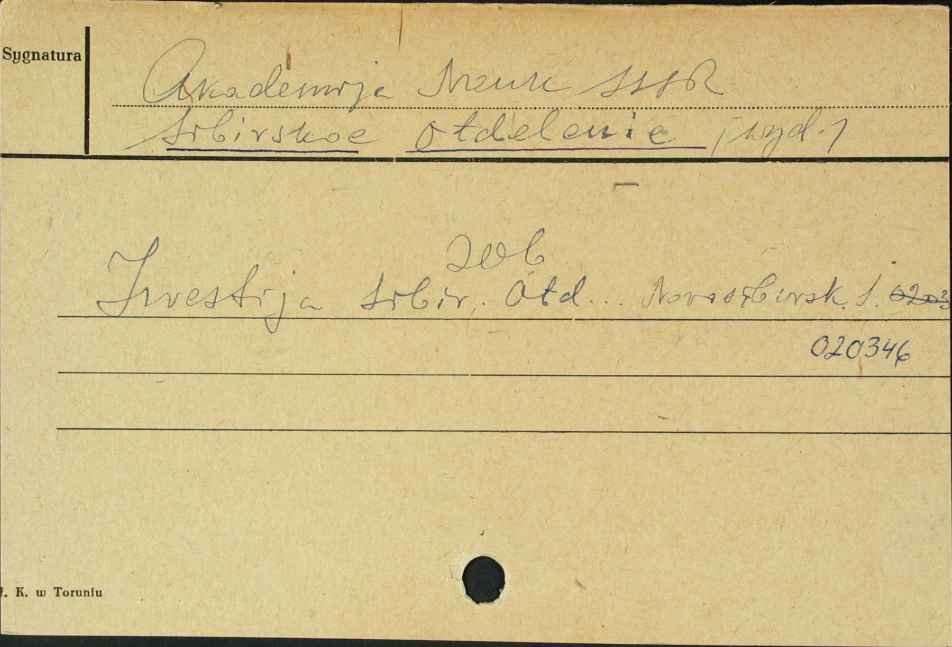 Sygnatura
Akademija Nauk SSSR
Sibirskoe Otdelenie (wyd.)
zob
Izvestija Sibir. Otd... Novosibirsk. S.
020346
U. K. w Toruniu